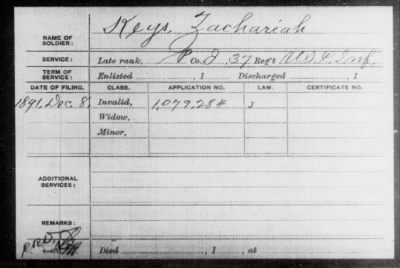 NAME OF SOLDIER: Keys, Zachariah
SERVICE: Late rank, P Co. I, 37 Reg't U.S.C. Inf.
TERM OF SERVICE: Enlisted , 1 Discharged , 1
DATE OF FILING. CLASS. APPLICATION NO. LAW. CERTIFICATE NO.
1891, Dec. 8, Invalid, 1,079,284
Widow,
Minor,
ADDITIONAL SERVICES:
REMARKS:
Died , 1 , at